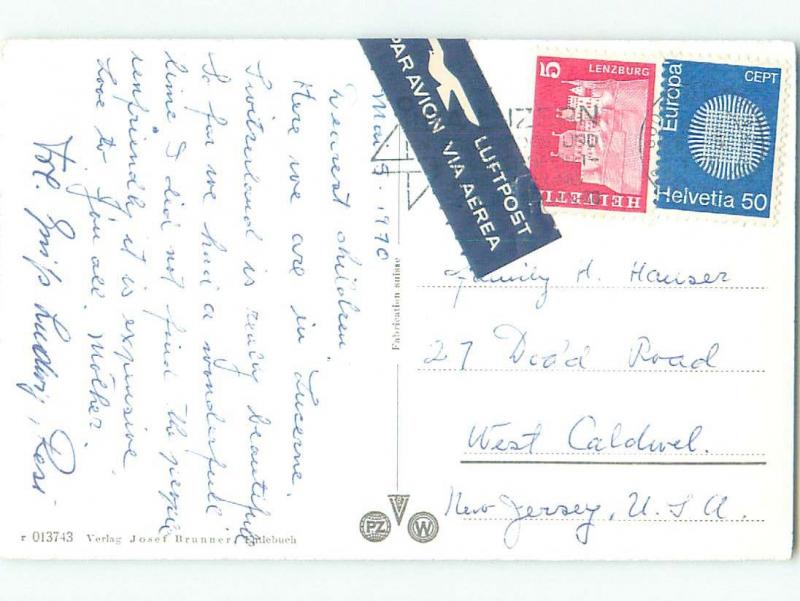 Mai 5. 1970
Dearest children,
Here we are in Lucerne.
Switzerland is really beautiful
So far we had a wonderfull
time I did not find the people
unfriendly it is expensive
Love to you all. Mother.
Hrl. Grüße Ludwig, Rosi
PAR AVION VIA AEREA
LUFTPOST
5 LENZBURG
HELVETIA
Europa CEPT
Helvetia 50
Family H. Hauser
27 Dodd Road
West Caldwel.
New Jersey, U.S.A.
Fabrication suisse
PZ W
r 013743 Verlag Josef Brunner, Entlebuch